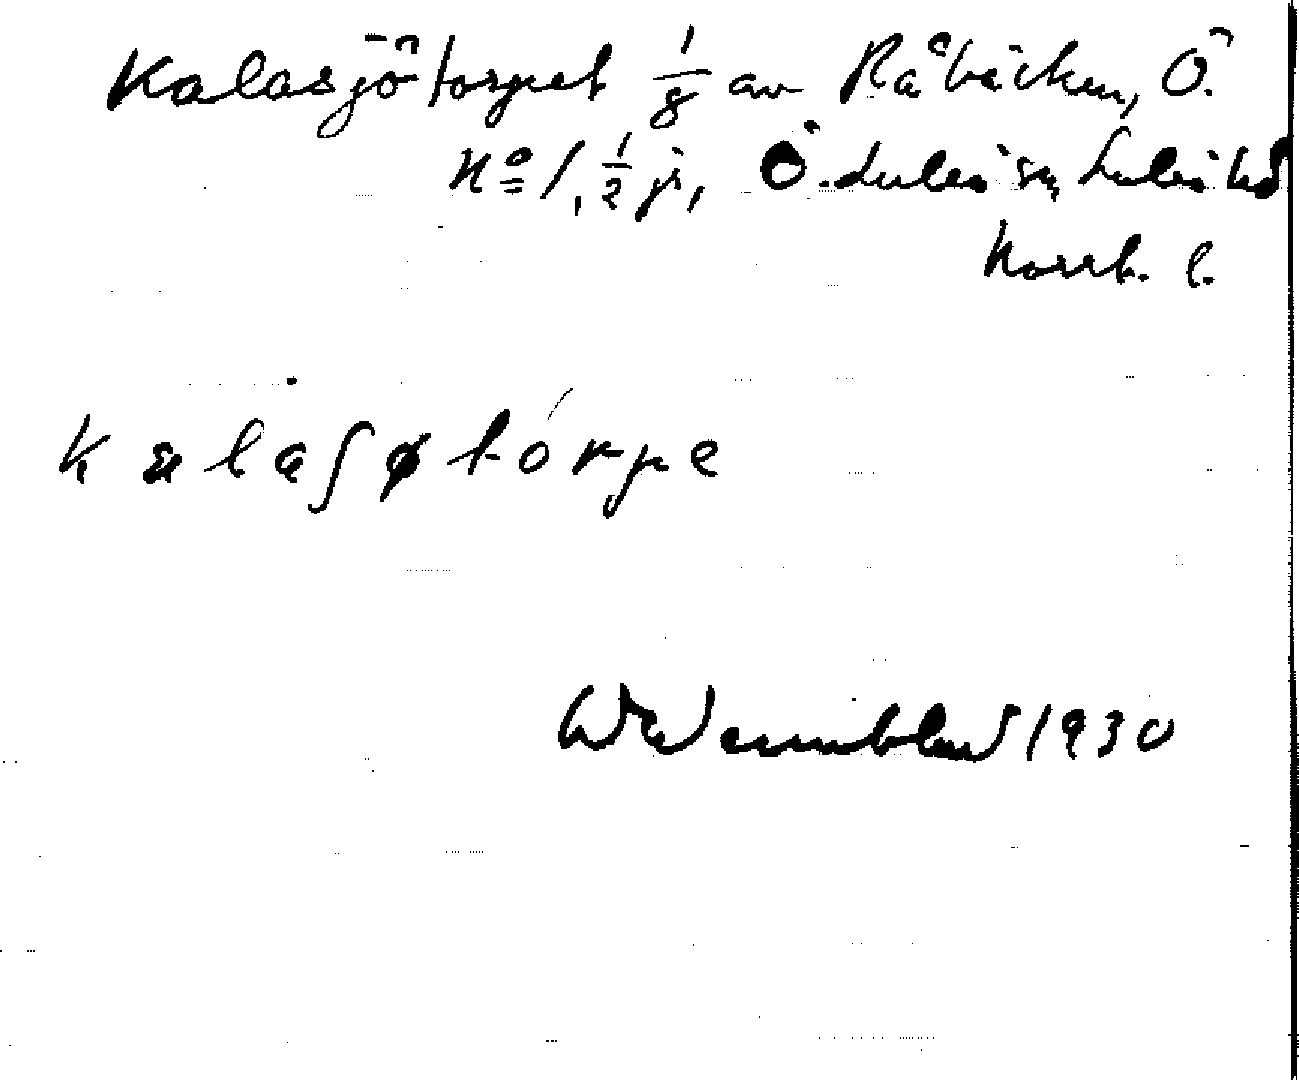 Kalasjötorpet 1/8 av Råbäcken, Ö.
No 1, 1/2 jr, Ö. Luleå sn, Luleå hd
Norrb. l.
kalaʃøtórpe
W Wennbland 1930